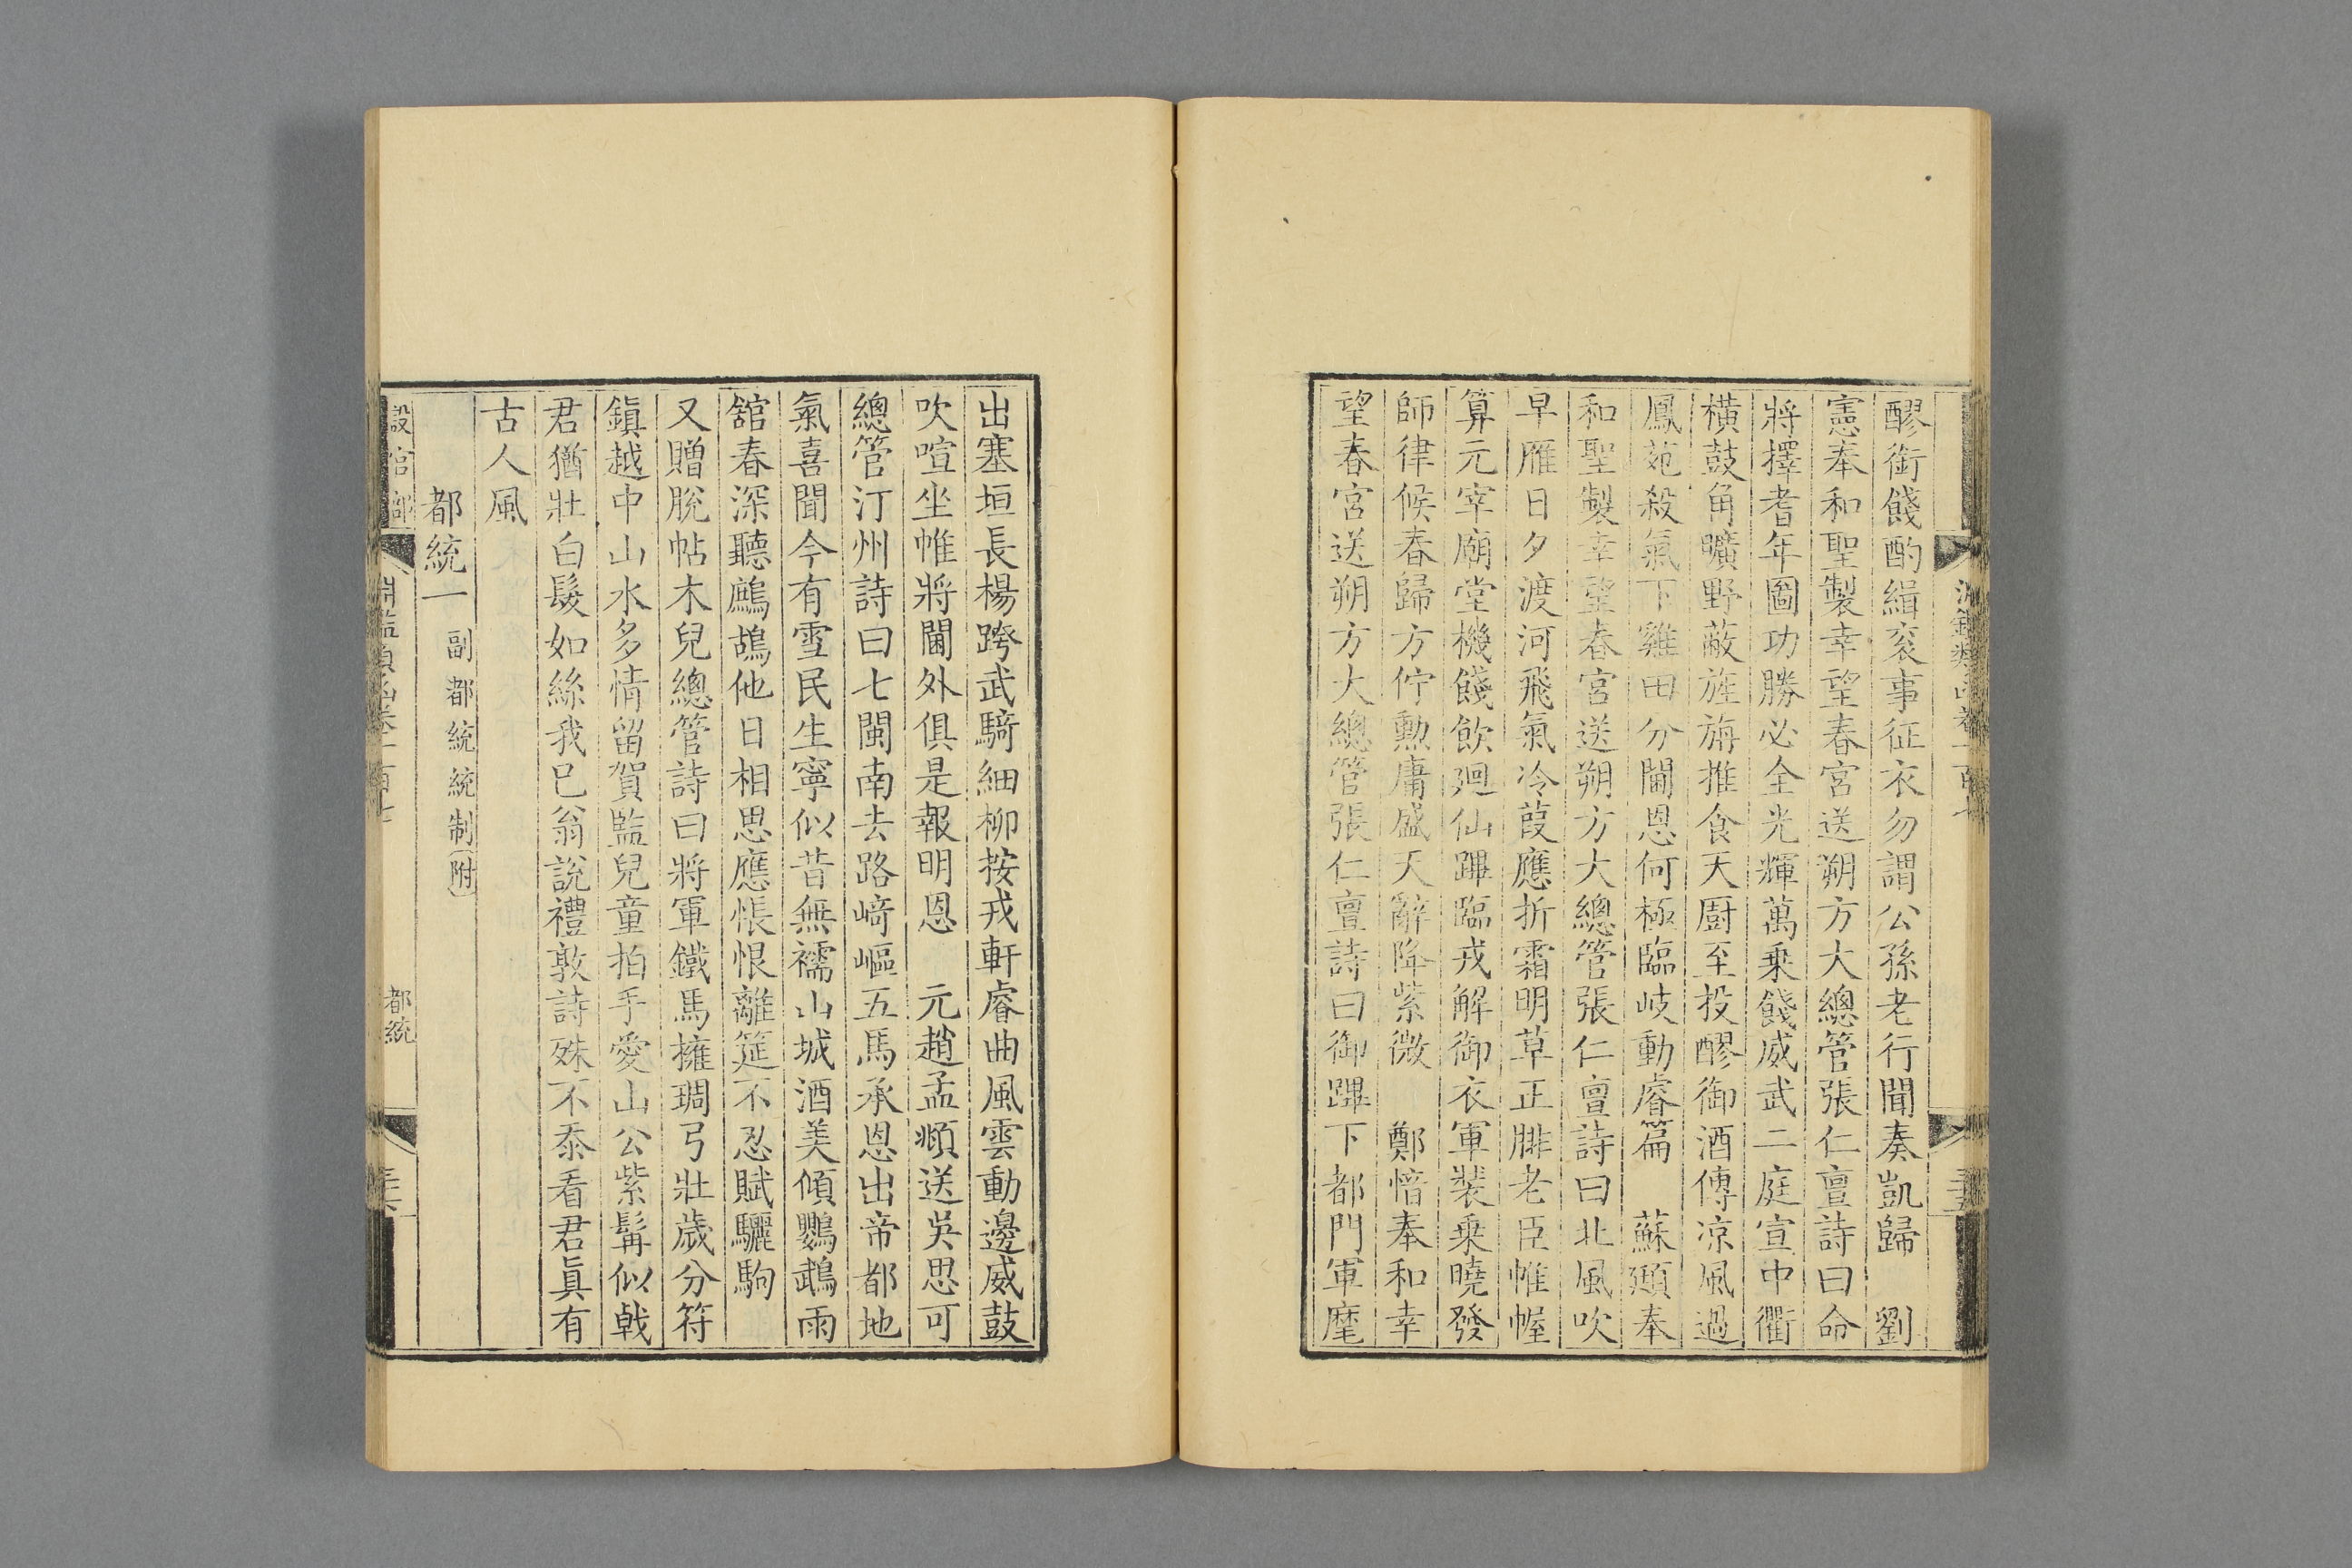 醪銜餞酌緝袞事征衣勿謂公孫老行聞奏凱歸　劉
憲奉和聖製幸望春宮送朔方大總管張仁亶詩曰命
將擇耆年圖功勝必全光輝萬乗餞威武二庭宣中衢
橫鼓角曠野蔽旌旃推食天廚至投醪御酒傳涼風過
鳳苑殺氣下雞田分閫恩何極臨岐動睿篇　蘇頲奉
和聖製幸望春宮送朔方大總管張仁亶詩曰北風吹
早雁日夕渡河飛氣冷葭應折霜明草正腓老臣帷幄
算元宰廟堂機餞飲廻仙蹕臨戎解御衣軍裝乗曉發
師律候春歸方佇勳庸盛天辭降紫微　鄭愔奉和幸
望春宮送朔方大總管張仁亶詩曰御蹕下都門軍麾
出塞垣長楊跨武騎細柳按戎軒睿曲風雲動邊威鼓
吹喧坐帷將閫外俱是報明恩　元趙孟頫送吳思可
總管汀州詩曰七閩南去路崎嶇五馬承恩出帝都地
氣喜聞今有雪民生寧似昔無襦山城酒美傾鸚鵡雨
舘春深聽鷓鴣他日相思應悵恨離筵不忍賦驪駒
又贈脫帖木兒總管詩曰將軍鐵馬擁琱弓壯歲分符
鎮越中山水多情留賀監兒童拍手愛山公紫髯似戟
君猶壯白髮如絲我已翁說禮敦詩殊不忝看君眞有
古人風
都統一　副都統　統制（附）
設官部
都統